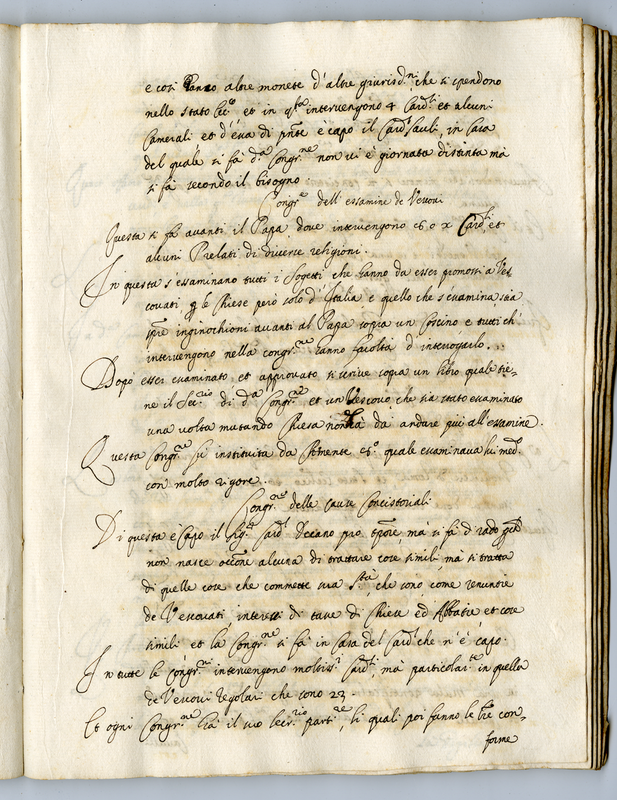 e così hanno altre monete d'altre giurisd.ni che si spendono
nello stato Ecc.o et in q.ta intervengono 4 Card.li et alcuni
Camerali et d'essa di pñte è capo il Card.l Sauli, in Casa
del quale si fà d.a Congr.ne non vi è giornata distinta mà
si fà secondo il bisogno.
Congr.ne dell'essamine de Vescovi
Questa si fà avanti il Papa dove intervengono 8 o x Card.li et
alcuni Prelati di diverse religioni.
In questa s'essaminano tutti i Sogetti che hanno da esser promossi a Ves
covati p le Chiese però solo d'Italia e quello che s'essamina, stà
sẽpre inginochioni avanti al Papa sopra un Coscino e tutti ch'
intervengono nella congr.ne hanno facoltà d'interrogarlo.
Dopò esser essaminato et approvato si scrive sopra un libro quale tie-
ne il Secr.rio di d.a Congr.ne et un Vescovo che sia stato essaminato
una volta mutando Chiesa non hà da andare più all'essamine.
Questa Congr.ne fù instituita da Clemente 8.o quale essaminava lui med.o
con molto rigore.
Congr.ne delle cause Concistoriali
Di questa è Capo il Sig.r Card.l Decano pro tp̃ore, mà si fà di rado perchè
non nasce occõne alcuna di trattare cose simili, mà si tratta
di quelle cose che commette sua S.tà, che sono, come renuntie
de Vescovati, interesse di tasse di Chiese ed Abbatie et cose
simili et la Congr.ne si fà in Casa del Card.l che n'è capo.
In tutte le congr.ni intervengono molti Card.li, mà particolar.te in quella
de Vescovi Regolari che sono 23.
Et ogni Congr.ne hà il suo secr.rio part.re, li quali poi fanno le lr̃e con-
forme